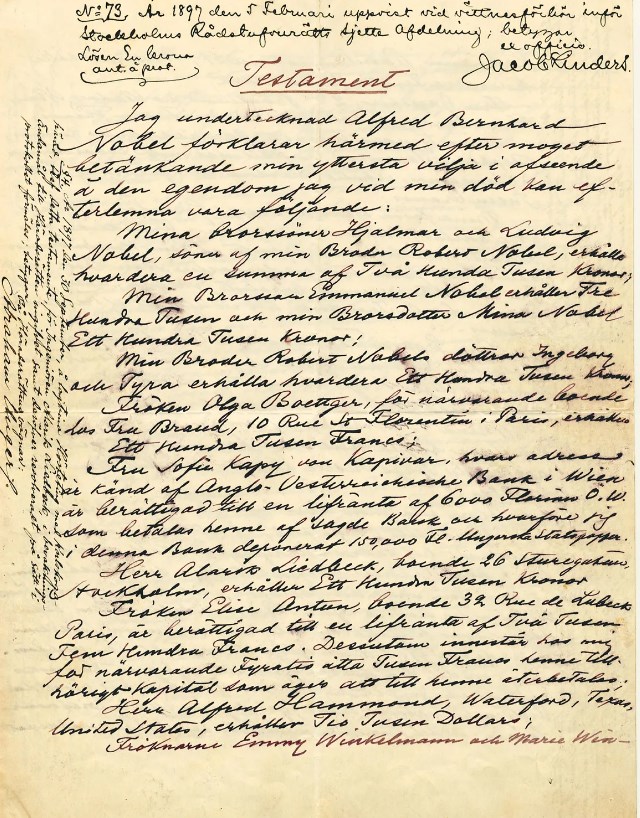 No 73. År 1897 den 5 Februari uppvist vid vittnesförhör inför
Stockholms Rådstufvurätts sjette Afdelning; betygar
ex officio.
Lösen En krona
ant. å prot.
Testament
Jag undertecknad Alfred Bernhard
Nobel förklarar härmed efter moget
betänkande min yttersta vilja i afseende
å den egendom jag vid min död kan ef-
terlemna vara följande:
Mina Brorssöner Hjalmar och Ludvig
Nobel, söner af min Broder Robert Nobel, erhålla
hvardera en summa af Två Hundra Tusen Kronor;
Min Brorsson Emmanuel Nobel erhåller Tre
Hundra Tusen och min Brorsdotter Mina Nobel
Ett Hundra Tusen Kronor;
Min Broder Robert Nobels döttrar Ingeborg
och Tyra erhålla hvardera Ett Hundra Tusen Kronor,
Fröken Olga Boettger, för närvarande boende
hos Fru Brand, 10 Rue St Florentin i Paris, erhåller
Ett Hundra Tusen Francs;
Fru Sofie Kapy von Kapivar, hvars adress
är känd af Anglo-Oesterreichische Bank i Wien
är berättigad till en lifränta af 6000 Florins Ö.W.
som betalas henne af sagde Bank och hvarföre jag
i denna Bank deponerat 150,000 Fl. i Ungerska Statspapper.
Herr Alarik Liedbeck, boende 26 Sturegatan,
Stockholm, erhåller Ett Hundra Tusen Kronor
Fröken Elise Antun, boende 32 Rue de Lubeck
Paris, är berättigad till en lifränta af Två Tusen
Fem Hundra Francs. Dessutom innestår hos mig
för närvarande Fyratio åtta Tusen Francs henne till-
hörigt Kapital som äger att till henne återbetalas;
Herr Alfred Hammond, Waterford, Texas,
United States, erhåller Tio Tusen Dollars;
Fröknarne Emmy Winkelmann och Marie Win-